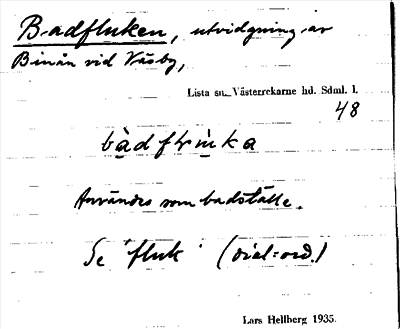 Badfluken, utvidgning av
Binån vid Väsby,
Lista sn. Västerrekarne hd. Sdml. l.
48
Användes som badställe.
Se "fluk" (dial-ord.)
Lars Hellberg 1935.